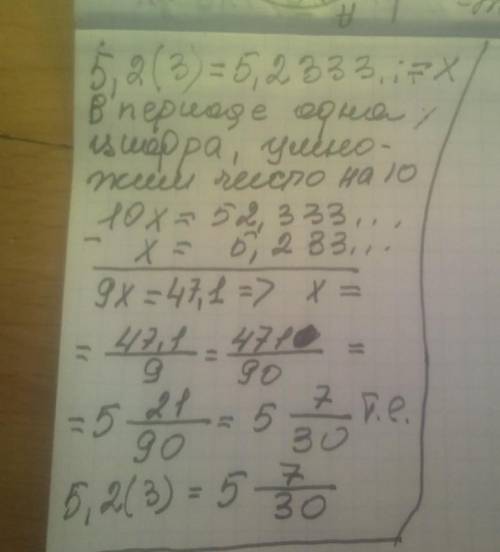 5,2(3) = 5,2333... = x
В периоде одна
цифра, умно-
жим число на 10
10x = 52,333...
- x = 5,233...
9x = 47,1 => x =
= 47,1/9 = 471/90 =
= 5 21/90 = 5 7/30 т.е.
5,2(3) = 5 7/30